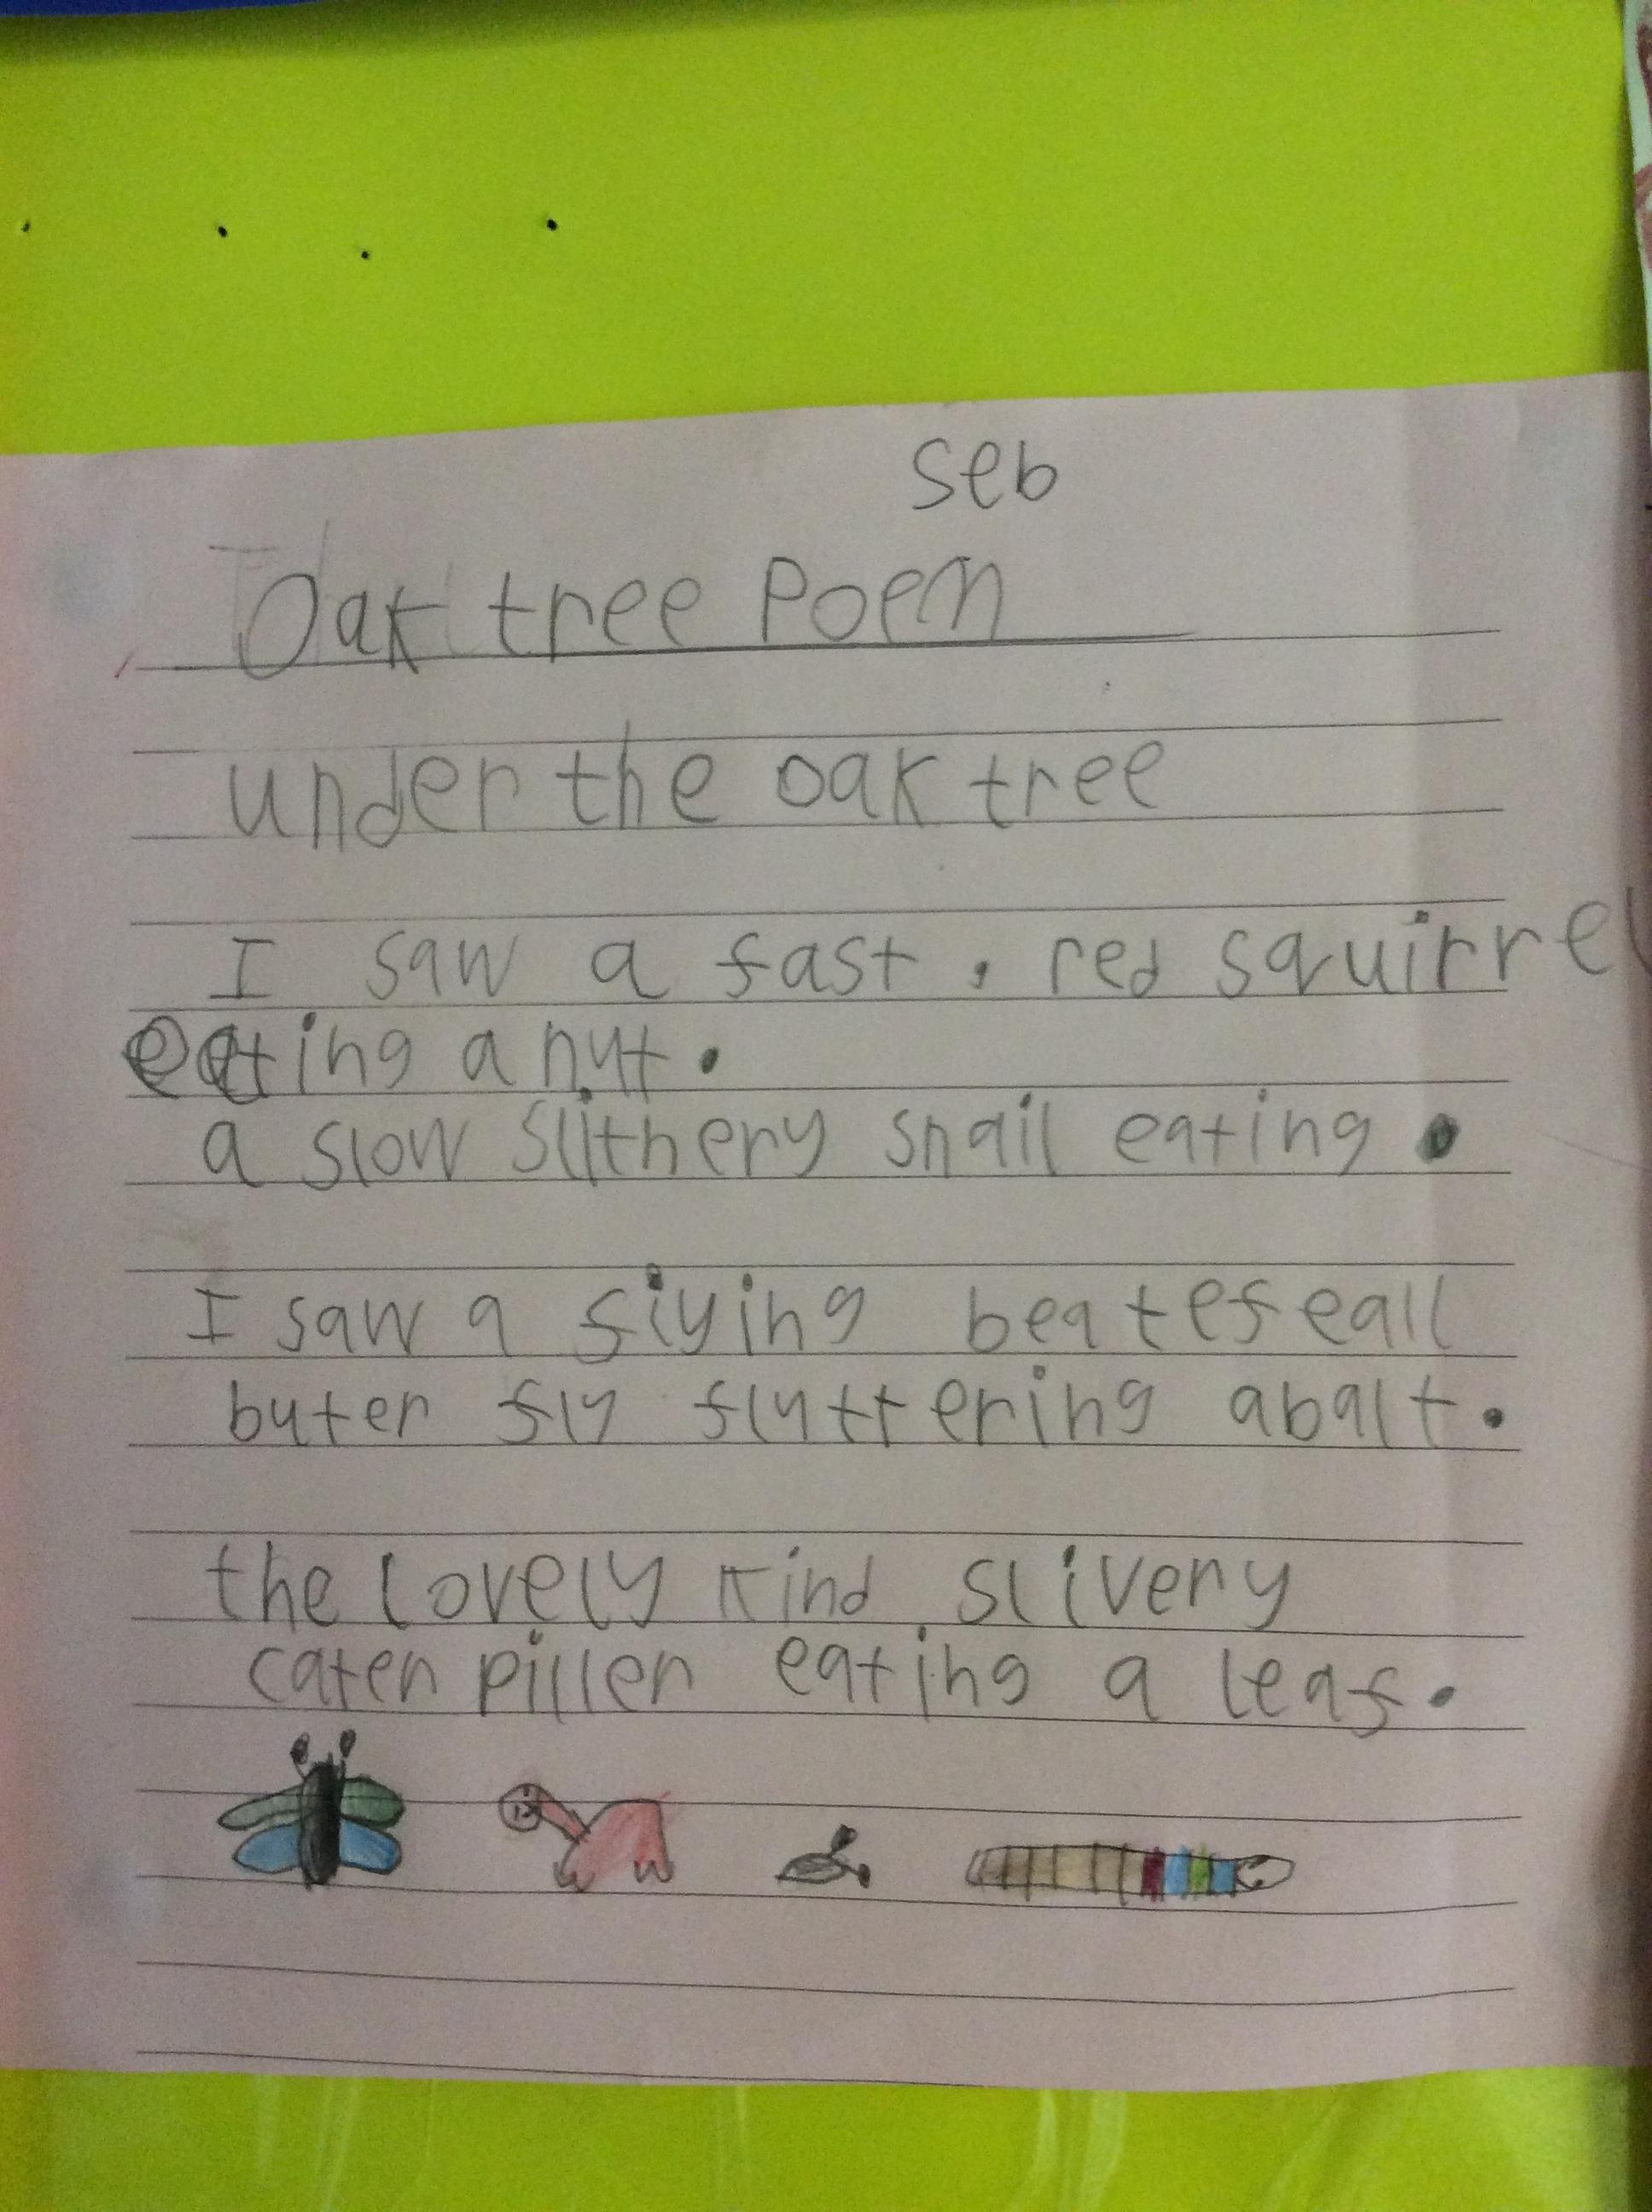 seb
Oak tree Poem
under the oak tree
I saw a fast , red squirrel
eating a nut .
a slow slithery snail eating .
I saw a fiying beatefeall
buter fly fluttering abalt .
the lovely kind slivery
cater piller eating a leaf .